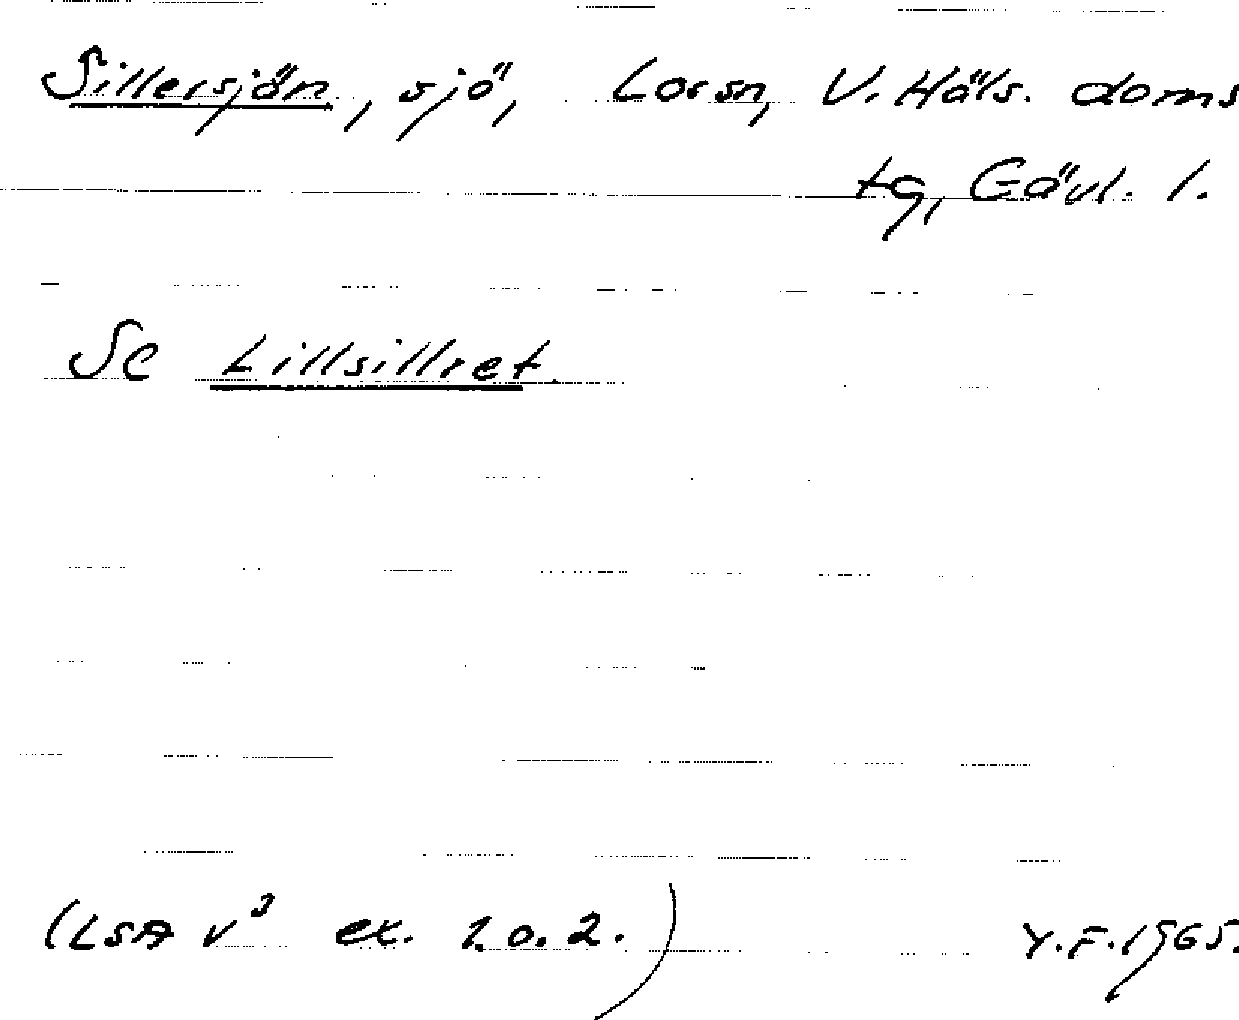 Sillersjön, sjö, Lorsn, V. Häls. doms
tg, Gävl. l.
Se Lillsillret.
(LSA v³ ex. 1 o. 2.) Y.F. 1965.